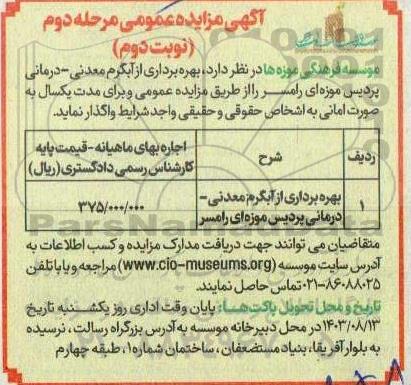 آگهی مزایده عمومی مرحله دوم
(نوبت دوم)
موسسه فرهنگی موزه‌ها در نظر دارد، بهره برداری از آبگرم معدنی-درمانی
پردیس موزه‌ای رامسر را از طریق مزایده عمومی و برای مدت یکسال به
صورت امانی به اشخاص حقوقی و حقیقی واجد شرایط واگذار نماید.
ردیف شرح اجاره بهای ماهیانه-قیمت پایه
کارشناس رسمی دادگستری (ریال)
۱ بهره برداری از آبگرم معدنی-
درمانی پردیس موزه‌ای رامسر ۳۷۵/۰۰۰/۰۰۰
متقاضیان می توانند جهت دریافت مدارک مزایده و کسب اطلاعات به
آدرس سایت موسسه (www.cio-museums.org) مراجعه و یا با تلفن
۸۶۰۸۸۰۲۵-۰۲۱ تماس حاصل نمایند.
تاریخ و محل تحویل پاکت‌ها: پایان وقت اداری روز یکشنبه تاریخ
۱۴۰۳/۰۸/۱۳ در محل دبیرخانه موسسه به آدرس بزرگراه رسالت، نرسیده
به بلوار آفریقا، بنیاد مستضعفان، ساختمان شماره ۱، طبقه چهارم